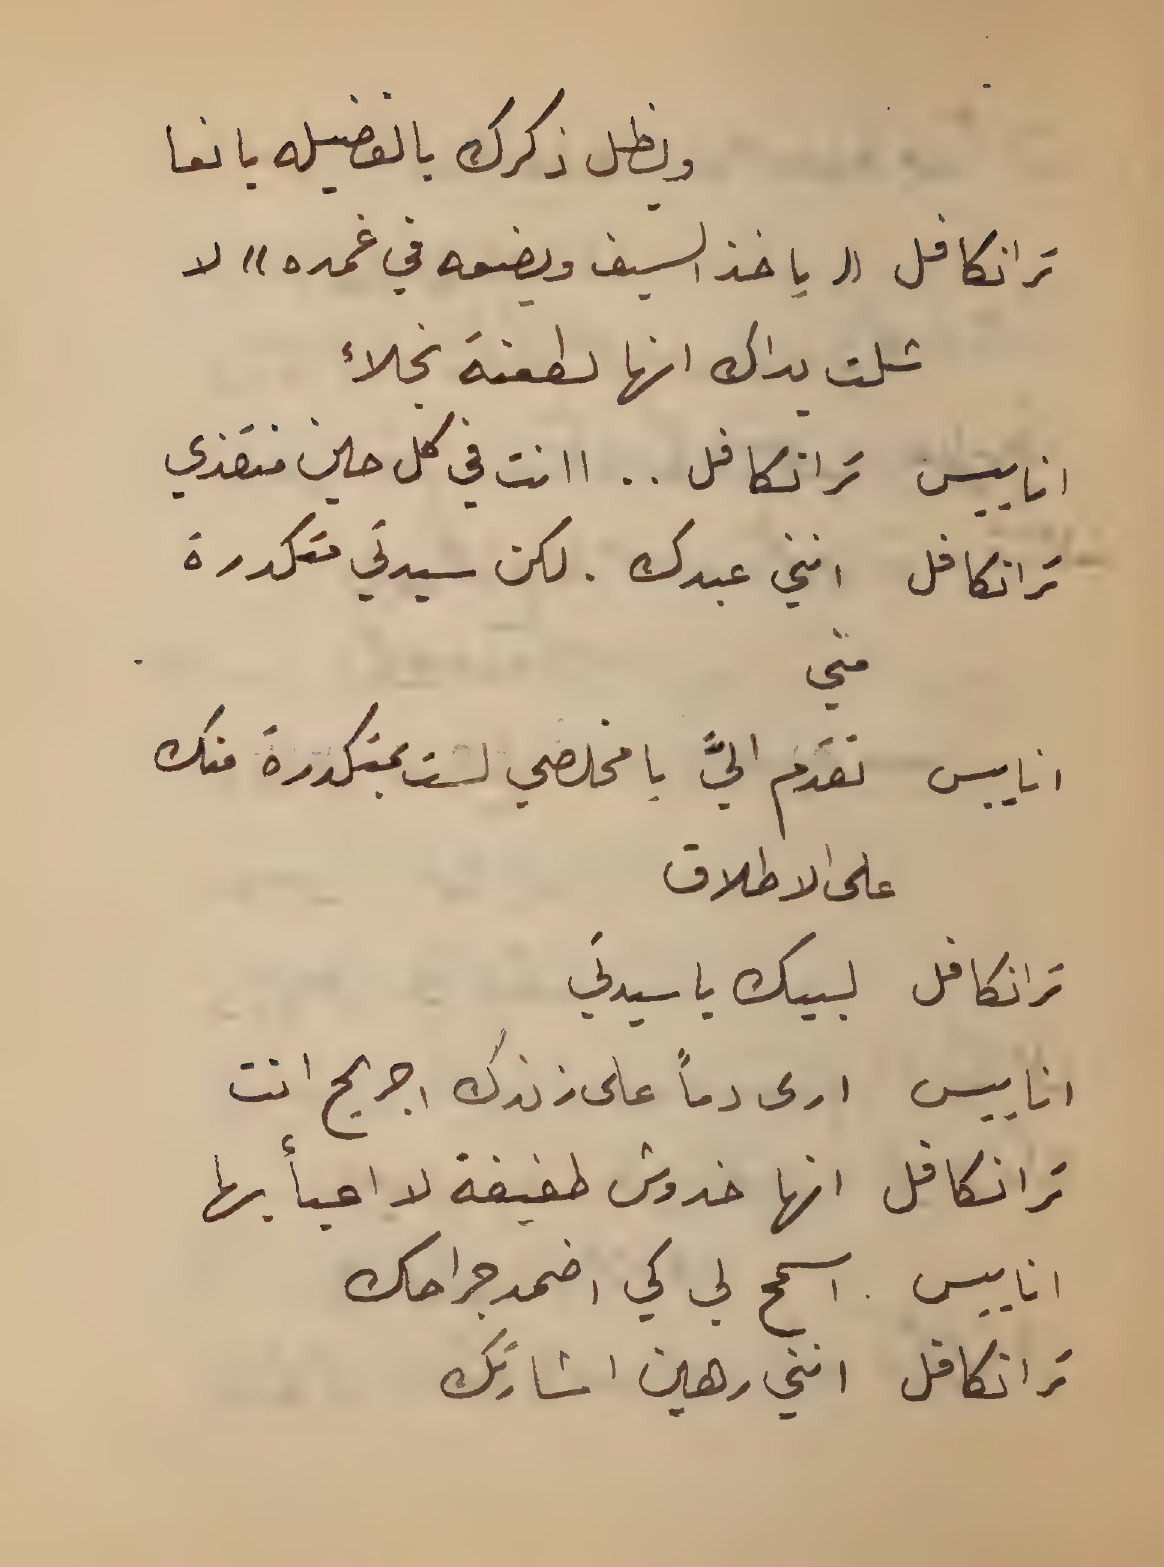 ويظل ذكرك بالفضيله يانعا
ترانكافل « ياخذ السيف ويضعه في غمده » لا
شلت يداك انها لطعنة نجلاء
اناييس ترانكافل .. اانت في كل حين منقذي
ترانكافل انني عبدك . لكن سيدتي متكدرة
مني
اناييس تقدم اليَّ يا مخلصي لست بمتكدرة منك
على الاطلاق
ترانكافل لبيك يا سيدتي
اناييس ارى دماً على زندك اجريح انت
ترانكافل انها خدوش طفيفة لا اعبأ بها
اناييس . اسمح لي كي اضمد جراحك
ترانكافل انني رهين اشارتك